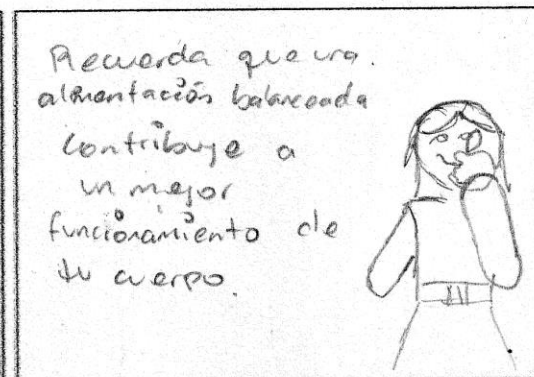 Recuerda que una.
alimentación balanceada
contribuye a
un mejor
funcionamiento de
tu cuerpo.